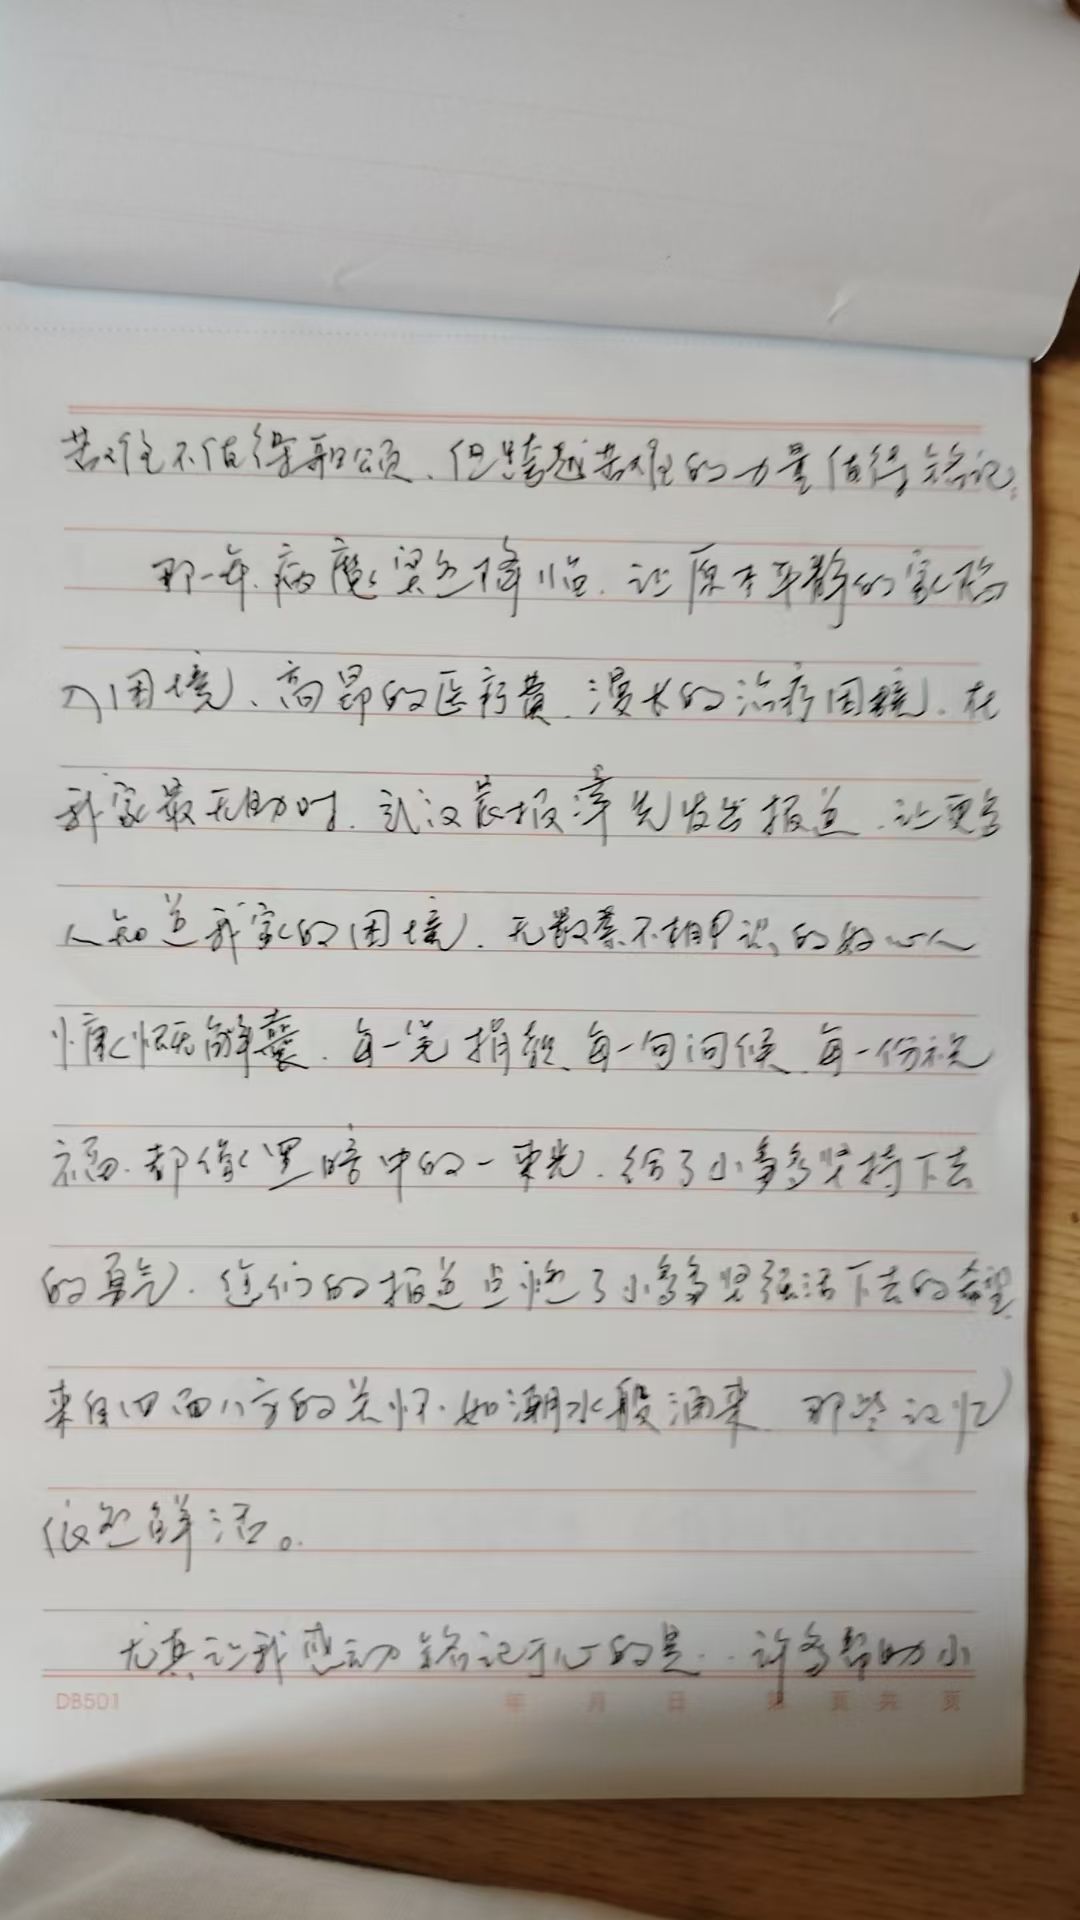 苦难不值得歌颂、但跨越苦难的力量值得铭记。
那一年、病魔突然降临、让原本平静的家陷
入困境、高昂的医疗费、漫长的治疗困境、在
我家最无助时、武汉晨报率先发出报道、让更多
人知道我家的困境、无数素不相识的好心人
慷慨解囊、每一笔捐款、每一句问候、每一份祝
福、都像黑暗中的一束光、给了小多多坚持下去
的勇气、您们的报道点燃了小多多坚强活下去的希望
来自四面八方的关怀、如潮水般涌来、那些记忆
依然鲜活。
尤其让我感动铭记于心的是、许多帮助小
DB501
年 月 日 第 页 共 页